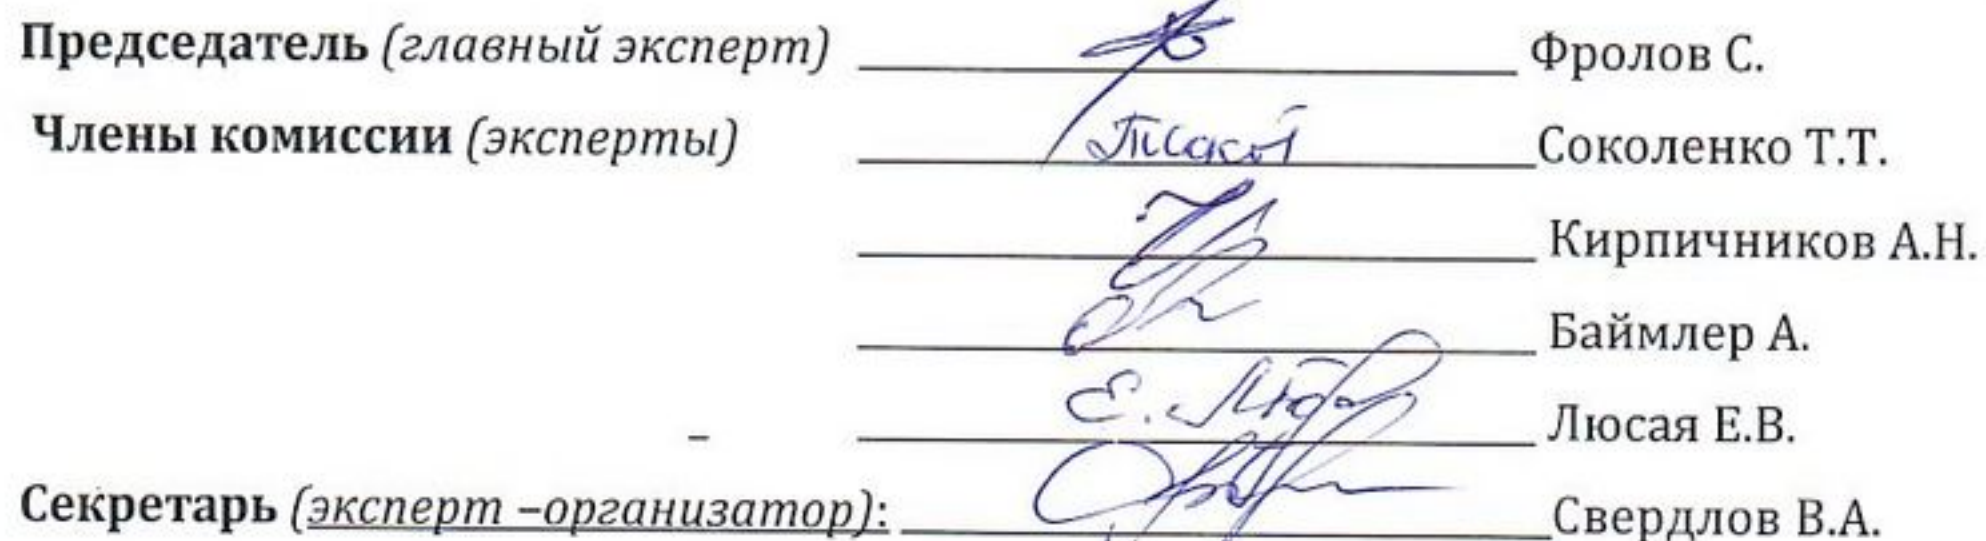 Председатель (главный эксперт) Фролов С.
Члены комиссии (эксперты) Соколенко Т.Т.
Кирпичников А.Н.
Баймлер А.
– Люсая Е.В.
Секретарь (эксперт –организатор): Свердлов В.А.